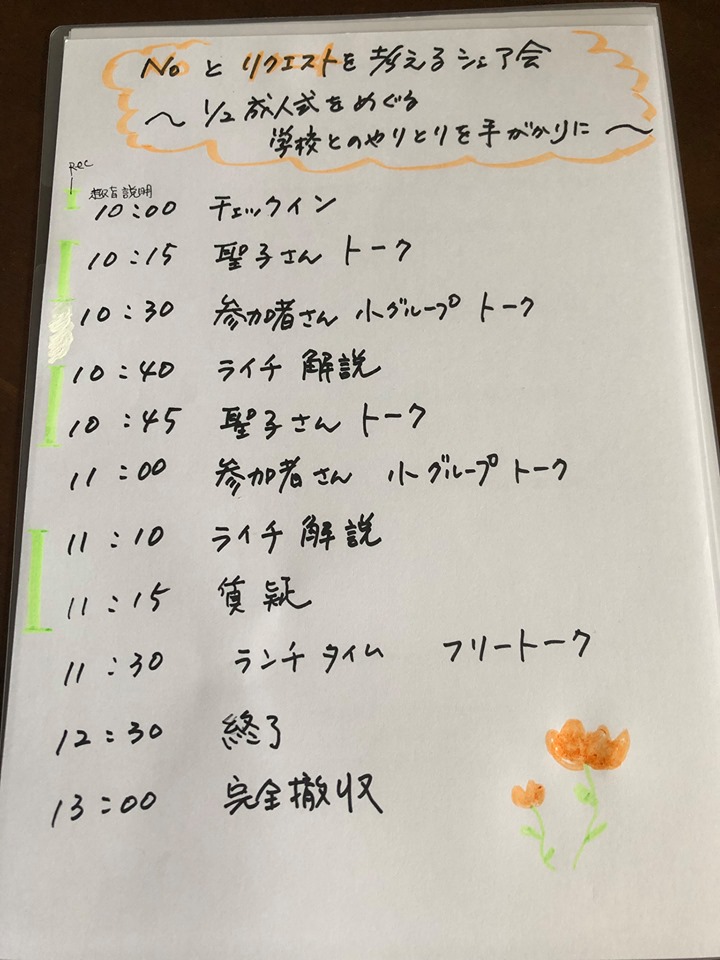 Noとリクエストを考えるシェア会
〜 1/2成人式をめぐる
学校とのやりとりを手がかりに 〜
rec
趣旨説明
10:00 チェックイン
10:15 聖子さん トーク
10:30 参加者さん 小グループ トーク
10:40 ライチ 解説
10:45 聖子さん トーク
11:00 参加者さん 小グループ トーク
11:10 ライチ 解説
11:15 質疑
11:30 ランチタイム フリートーク
12:30 終了
13:00 完全撤収